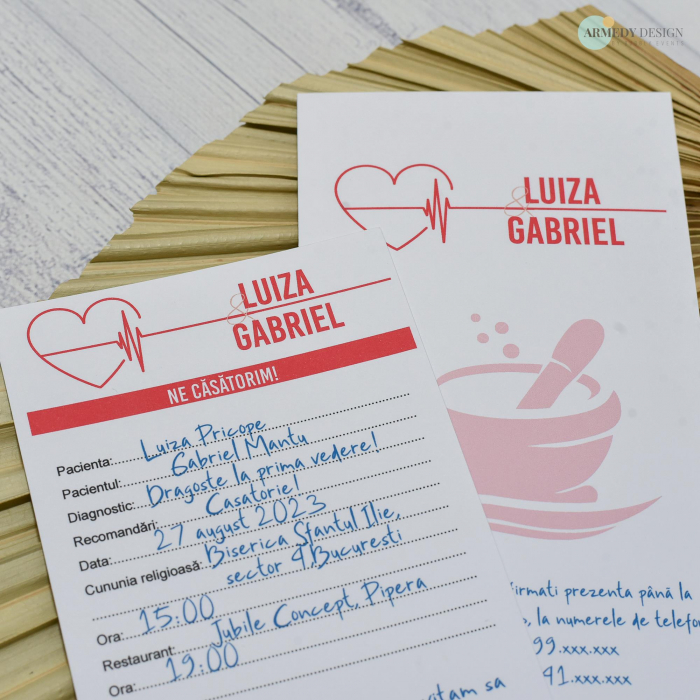 ARMEDY DESIGN
LUIZA
&
GABRIEL
LUIZA
&
GABRIEL
NE CĂSĂTORIM!
Pacienta: Luiza Pricope
Pacientul: Gabriel Mantu
Diagnostic: Dragoste la prima vedere!
Recomandări: Casatorie!
Data: 27 august 2023
Cununia religioasă: Biserica Sfantul Ilie,
sector 4, Bucuresti
Ora: 15:00
Restaurant: Jubile Concept, Pipera
Ora: 19:00
tam sa
firmati prezenta până la
, la numerele de telefo
99.xxx.xxx
41.xxx.xxx